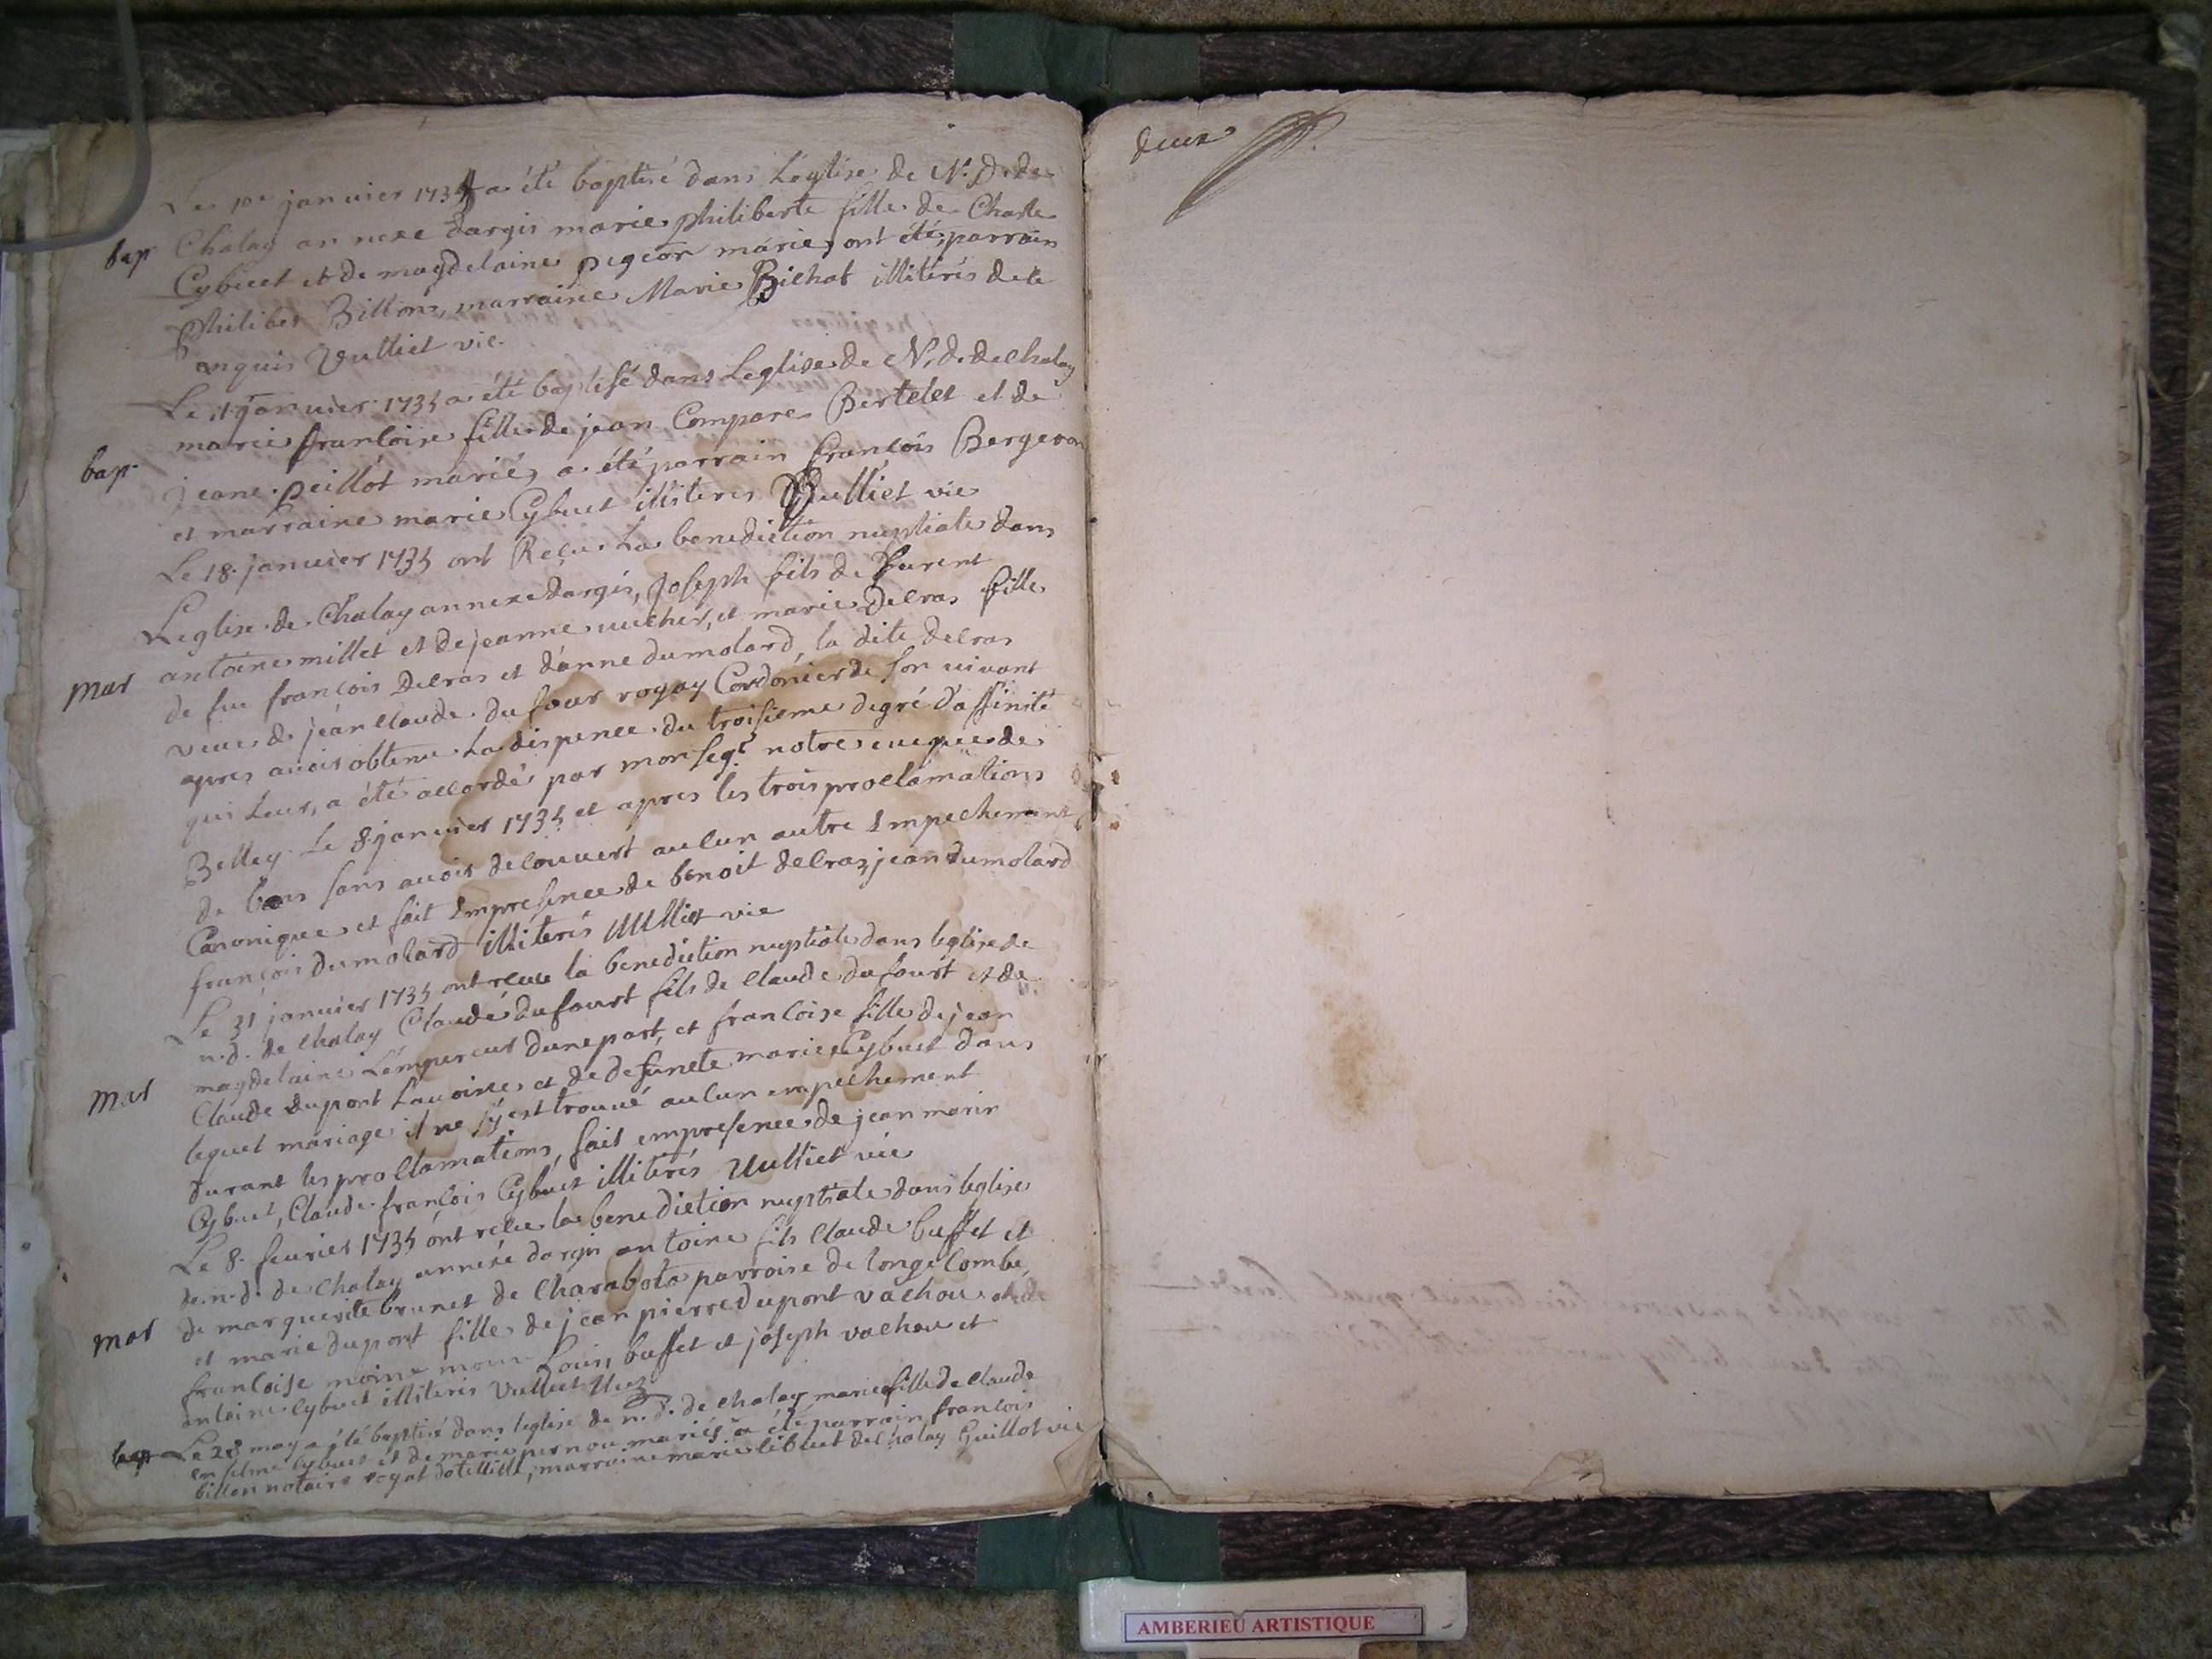 Le 10e janvier 1735 a été baptisé dans Léglise de N. D. de
bap Chaley annexe dargis marie philiberte fille de Charle
Cybuet et de magdelaine pegeon mariés ont été parrain
philiber Billion, marraine Marie Bilhat illitérés de ce
enquis Vulliet vic.
Le janvier 1735 a été baptisé dans Leglise de N. d. de chaley
marie francoise fille de jean Compare Bertelet et de
bap. jeane peillot mariés, a été parrain François Bergeron
et marraine marie Cybuet illiteres Vulliet vic
Le 18. janvier 1735 ont Reçu La benediction nuptiale dans
Leglise de Chaley annexe dargis, Joseph fils de
mar antoine millet et de jeanne vucher, et marie Delras fille
de feu françois Delras et danne dumolard, la dite Delras
veuve de jean claude du four royay Cordonier de son vivant
apres avoir obtenu La dispence du troisieme degré daffinité
qui Leur, a été accordé par monseg.r notre eveque de
Belley Le 8 janvier 1735 et apres les trois proclamations
de bans sans avoir decouvert aucun autre Empechement
Canonique et fait Empresence de benoit delras, jean dumolard
françois dumolard illiterés Vulliet vic
Le 31 janvier 1735 ont receu la benediction nuptiale dans leglise de
n. d. de chaley Claude dufourt fils de claude dufourt et de
mar magdelaine Lempereur dune part, et francoise fille de jean
Claude dupont Lavoine et de defuncte marie Cybuet dans
lequel mariage il ne sy est trouvé aucun empechement
durant les proclamations, fait empresence de jean marin
Cybuet, Claude françois Cybuet illiterés Vulliet vic
Le 8. fevrier 1735 ont receu la benediction nuptiale dans leglise
de n. d. de chaley annexe dargis antoine fils claude buffet et
mar de marguerite brunet de Charabota parroise de longecombe,
et marie dupont fille de jean pierre dupont vachou et de
francoise moine Louis buffet et joseph vachou et
antoine Cybuet illiterés Vulliet
bap Le 28 may a été baptisé dans leglise de n. d. de chaley marie fille de claude
enselme Cybuet et de marie pernou mariés a été parrain françois
billon notaire royal marraine marie Cibuet de chaley Guillot vic
deux
AMBERIEU ARTISTIQUE